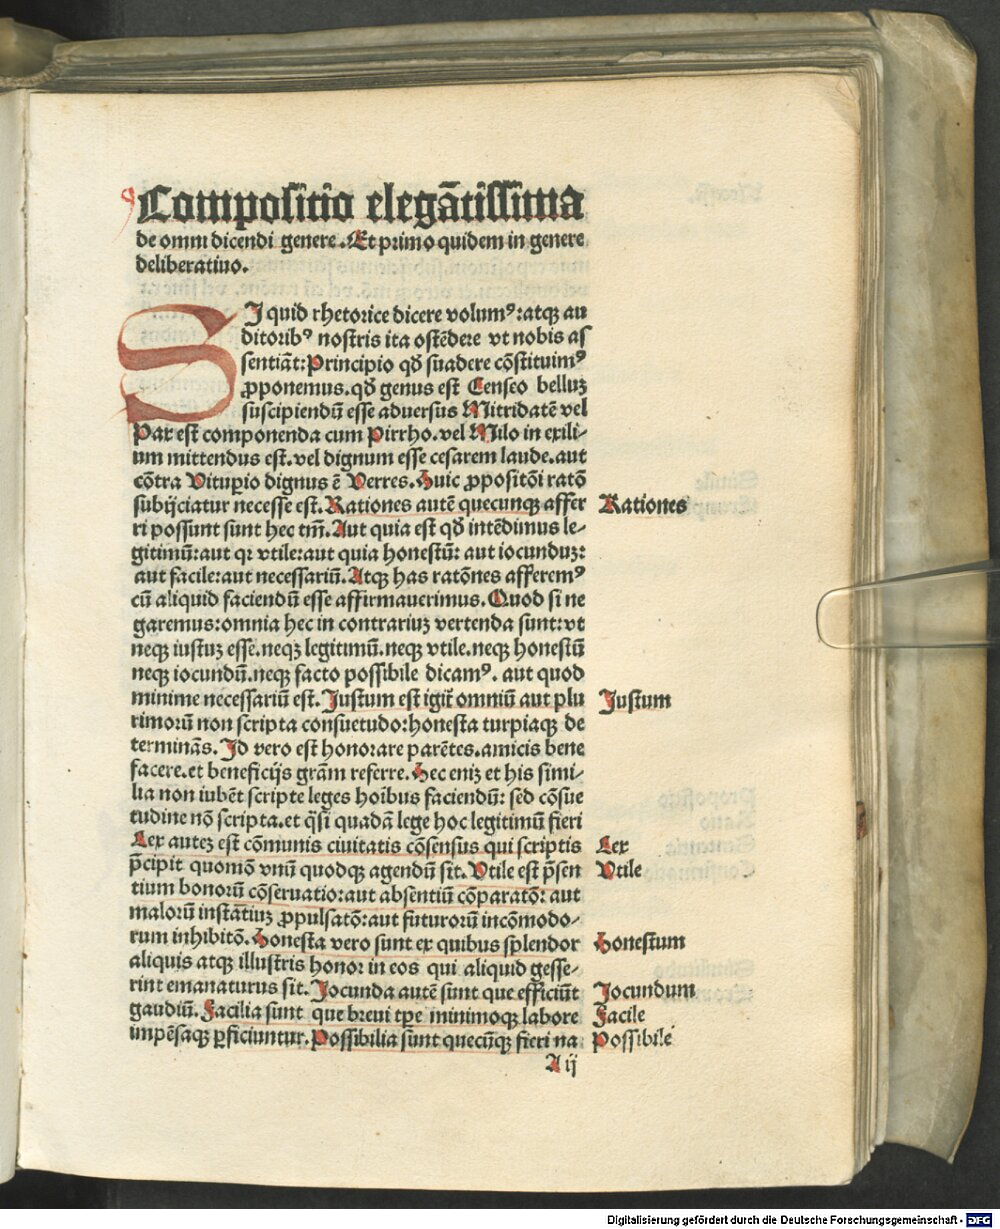 Compositio elegātissima
de omni dicendi genere. Et primo quidem in genere
deliberatiuo.
SI quid rhetorice dicere volumꝰ: atqꝫ au
ditoribꝰ nostris ita ostēdere vt nobis as
sentiāt: Principio qď suadere cōstituimꝰ
ꝓponemus. qď genus est Censeo belluꝫ
suscipiendū esse aduersus Mitridatē vel
Pax est componenda cum Pirrho. vel Milo in exili-
um mittendus est. vel dignum esse cesarem laude. aut
cōtra Vituꝑio dignus ē Verres. Huic ꝓpositōi ratō
subijciatur necesse est. Rationes autē quecunqꝫ affer
ri possunt sunt hec tm̄. Aut quia est qď intēdimus le-
gitimū: aut qꝛ vtile: aut quia honestū: aut iocunduꝫ:
aut facile: aut necessariū. Atqꝫ has ratōnes afferemꝰ
cū aliquid faciendū esse affirmauerimus. Quod si ne
garemus: omnia hec in contrariuꝫ vertenda sunt: vt
neqꝫ iustuꝫ esse. neqꝫ legitimū. neqꝫ vtile. neqꝫ honestū
neqꝫ iocundū. neqꝫ facto possibile dicamꝰ. aut quod
minime necessariū est. Justum est igit̄ omniū aut plu
rimorū non scripta consuetudo: honesta turpiaqꝫ de
terminās. Id vero est honorare parētes. amicis bene
facere. et beneficijs grām referre. Hec eniꝫ et his simi-
lia non iubēt scripte leges hoībus faciendū: sed cōsue
tudine nō scripta. et q̄si quadā lege hoc legitimū fieri
Lex auteꝫ est cōmunis ciuitatis cōsensus qui scriptis
p̄cipit quomō vnū quodqꝫ agendū sit. Vtile est p̄sen
tium bonorū cōseruatio: aut absentiū cōparatō: aut
malorū instātiuꝫ ꝓpulsatō: aut futurorū incōmodo-
rum inhibitō. Honesta vero sunt ex quibus splendor
aliquis atqꝫ illustris honor in eos qui aliquid gesse-
rint emanaturus sit. Jocunda autē sunt que efficiūt
gaudiū. Facilia sunt que breui tp̄e minimoqꝫ labore
impēsaqꝫ ꝑficiuntur. Possibilia sunt quecūqꝫ fieri na
A ij
Rationes
Justum
Lex
Vtile
Honestum
Jocundum
Facile
Possibile
Digitalisierung gefördert durch die Deutsche Forschungsgemeinschaft - DFG